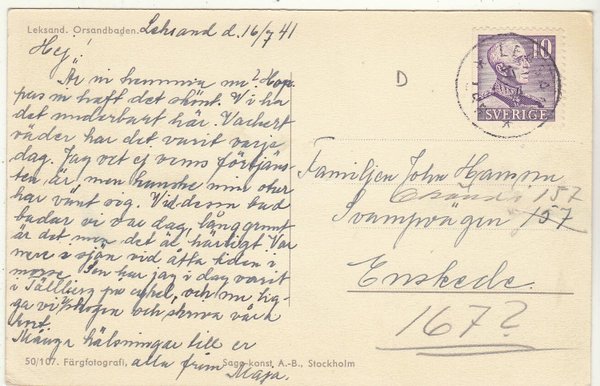 Leksand. Orsandbaden.
Leksand d. 16/7 41
Hej!
Är ni hemma nu? Hop-
pas ni haft det skönt. Vi ha
det underbart här. Vackert
väder har det varit varje
dag. Jag vet ej vems förtjäns-
ten är, men kanske min otur
har vänt sig. Vid denna bad
badar vi var dag, långgrunt
är det men det är härligt. Var
nere i sjön vid åtta tiden i
morse. Sen har jag i dag varit
i Tällberg på cykel, och nu lig-
ga vi i skogen och skriva våra
kort.
Många hälsningar till er
alla från Maja.
50/107. Färgfotografi,
Sago-konst, A.-B., Stockholm
D
10
SVERIGE
Familjen John Hamm
157
Svampvägen 157
Enskede.
167?